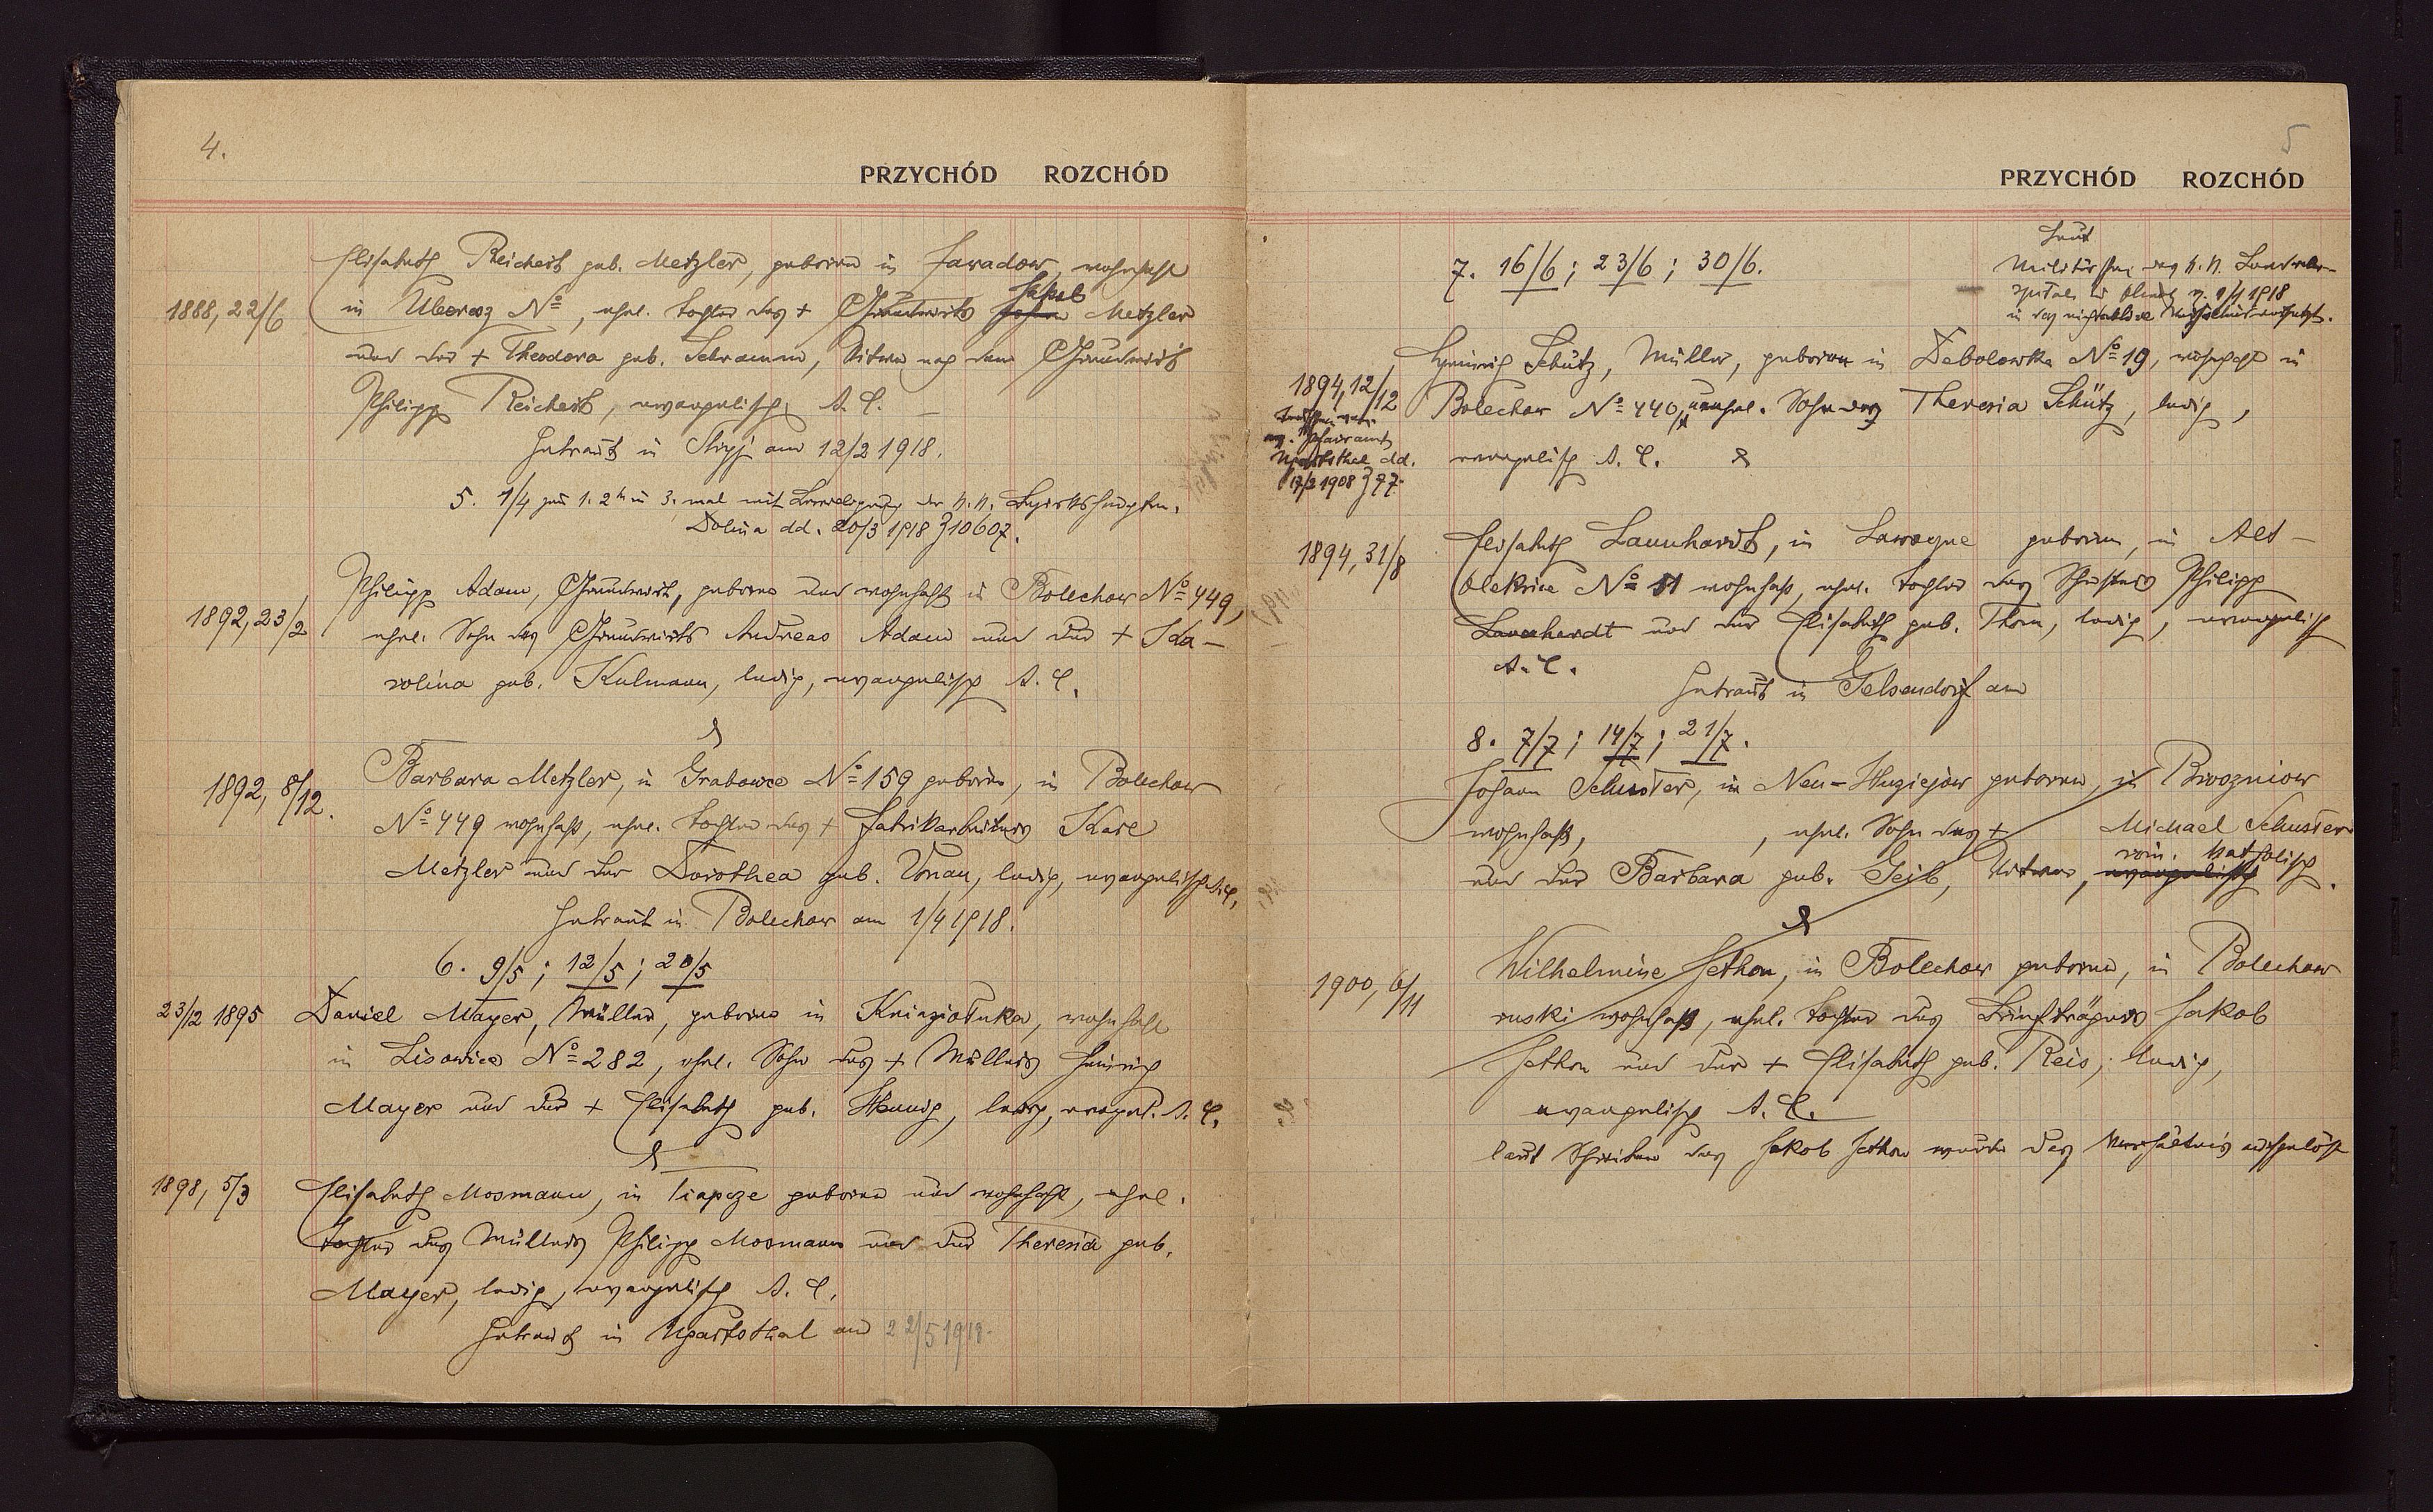 4.
PRZYCHÓD ROZCHÓD
Elisabeth Reichert geb. Metzler, geboren in Jaradow, wohnhaft
1888, 22/6 in Ubersz No, ehel. Tochter des + Grundwirts Jakob Metzler
und der + Theodora geb. Schramm, Witwe nach dem Grundwirt
Philipp Reichert, evangelisch A. C.
Getraut in Stryj am 12/2 1918.
5. 1/4 zum 1. 2ten u 3. mal mit Bewilligung der k. k. Bezirkshauptm.
Dolina dd. 20/3 1918 Z 10607.
Philipp Adam, Grundwirt, geboren und wohnhaft in Bolechow No 449,
1892, 23/2 ehel. Sohn des Grundwirts Andreas Adam und der + Ka-
rolina geb. Kulmann, ledig, evangelisch A. C.
&
Barbara Metzler, in Grabowce No 159 geboren, in Bolechow
1892, 8/12. No 449 wohnhaft, ehel. Tochter des + Fabrikarbeiters Karl
Metzler und der Dorothea geb. Vonau, ledig, evangelisch A.C.
Getraut in Bolechow am 1/4 1918.
6. 9/5; 12/5; 20/5
23/12 1895 Daniel Mayer, Müller, geboren in Kniaziotuka, wohnhaft
in Lisowice No 282, ehel. Sohn des + Müllers Heinrich
Mayer und der + Elisabeth geb. Hennig, ledig, evangel. A. C.
&
1898, 5/3 Elisabeth Mosmann, in Tiapcze geboren und wohnhaft, ehel.
Tochter des Müllers Philipp Mosmann und der Theresia geb.
Mayer, ledig, evangelisch A. C.
Getraut in Ugartsthal am 22/5 1918.
5
PRZYCHÓD ROZCHÓD
Laut
7. 16/6; 23/6; 30/6.
Militär des k. k. Landwehr-
spitals in Olmütz v. 9/4 1918
in das nichtaktive
Heinrich Schütz, Müller, geboren in Debolowka No 19, wohnhaft in
1894, 12/12 Bolechow No 440, unehel. Sohn der Theresia Schütz, ledig,
Taufschein vom
ev. Pfarramt
Ugartsthal dd.
17/2 1908 Z 97.
evangelisch A. C. &
1894, 31/8 Elisabeth Launhardt, in Lawoczne geboren, in Alt-
Oleksice No 51 wohnhaft, ehel. Tochter des Schusters Philipp
Launhardt und der Elisabeth geb. Thom, ledig, evangelisch
A. C.
Getraut in Gelsendorf am
8. 7/7; 14/7; 21/7.
Johann Schuster, in Neu-Mizyjow geboren, in Broczniow
wohnhaft, , ehel. Sohn des + Michael Schuster
und der Barbara geb. Geib, Witwer, evangelisch röm. katholisch.
&
Wilhelmine Jethon, in Bolechow geboren, in Bolechow
1900, 6/11 ruski wohnhaft, ehel. Tochter des Briefträgers Jakob
Jethon und der + Elisabeth geb. Reis, ledig,
evangelisch A. C.
laut Schreiben des Jakob Jethon wurde das Verhältnis aufgelöst